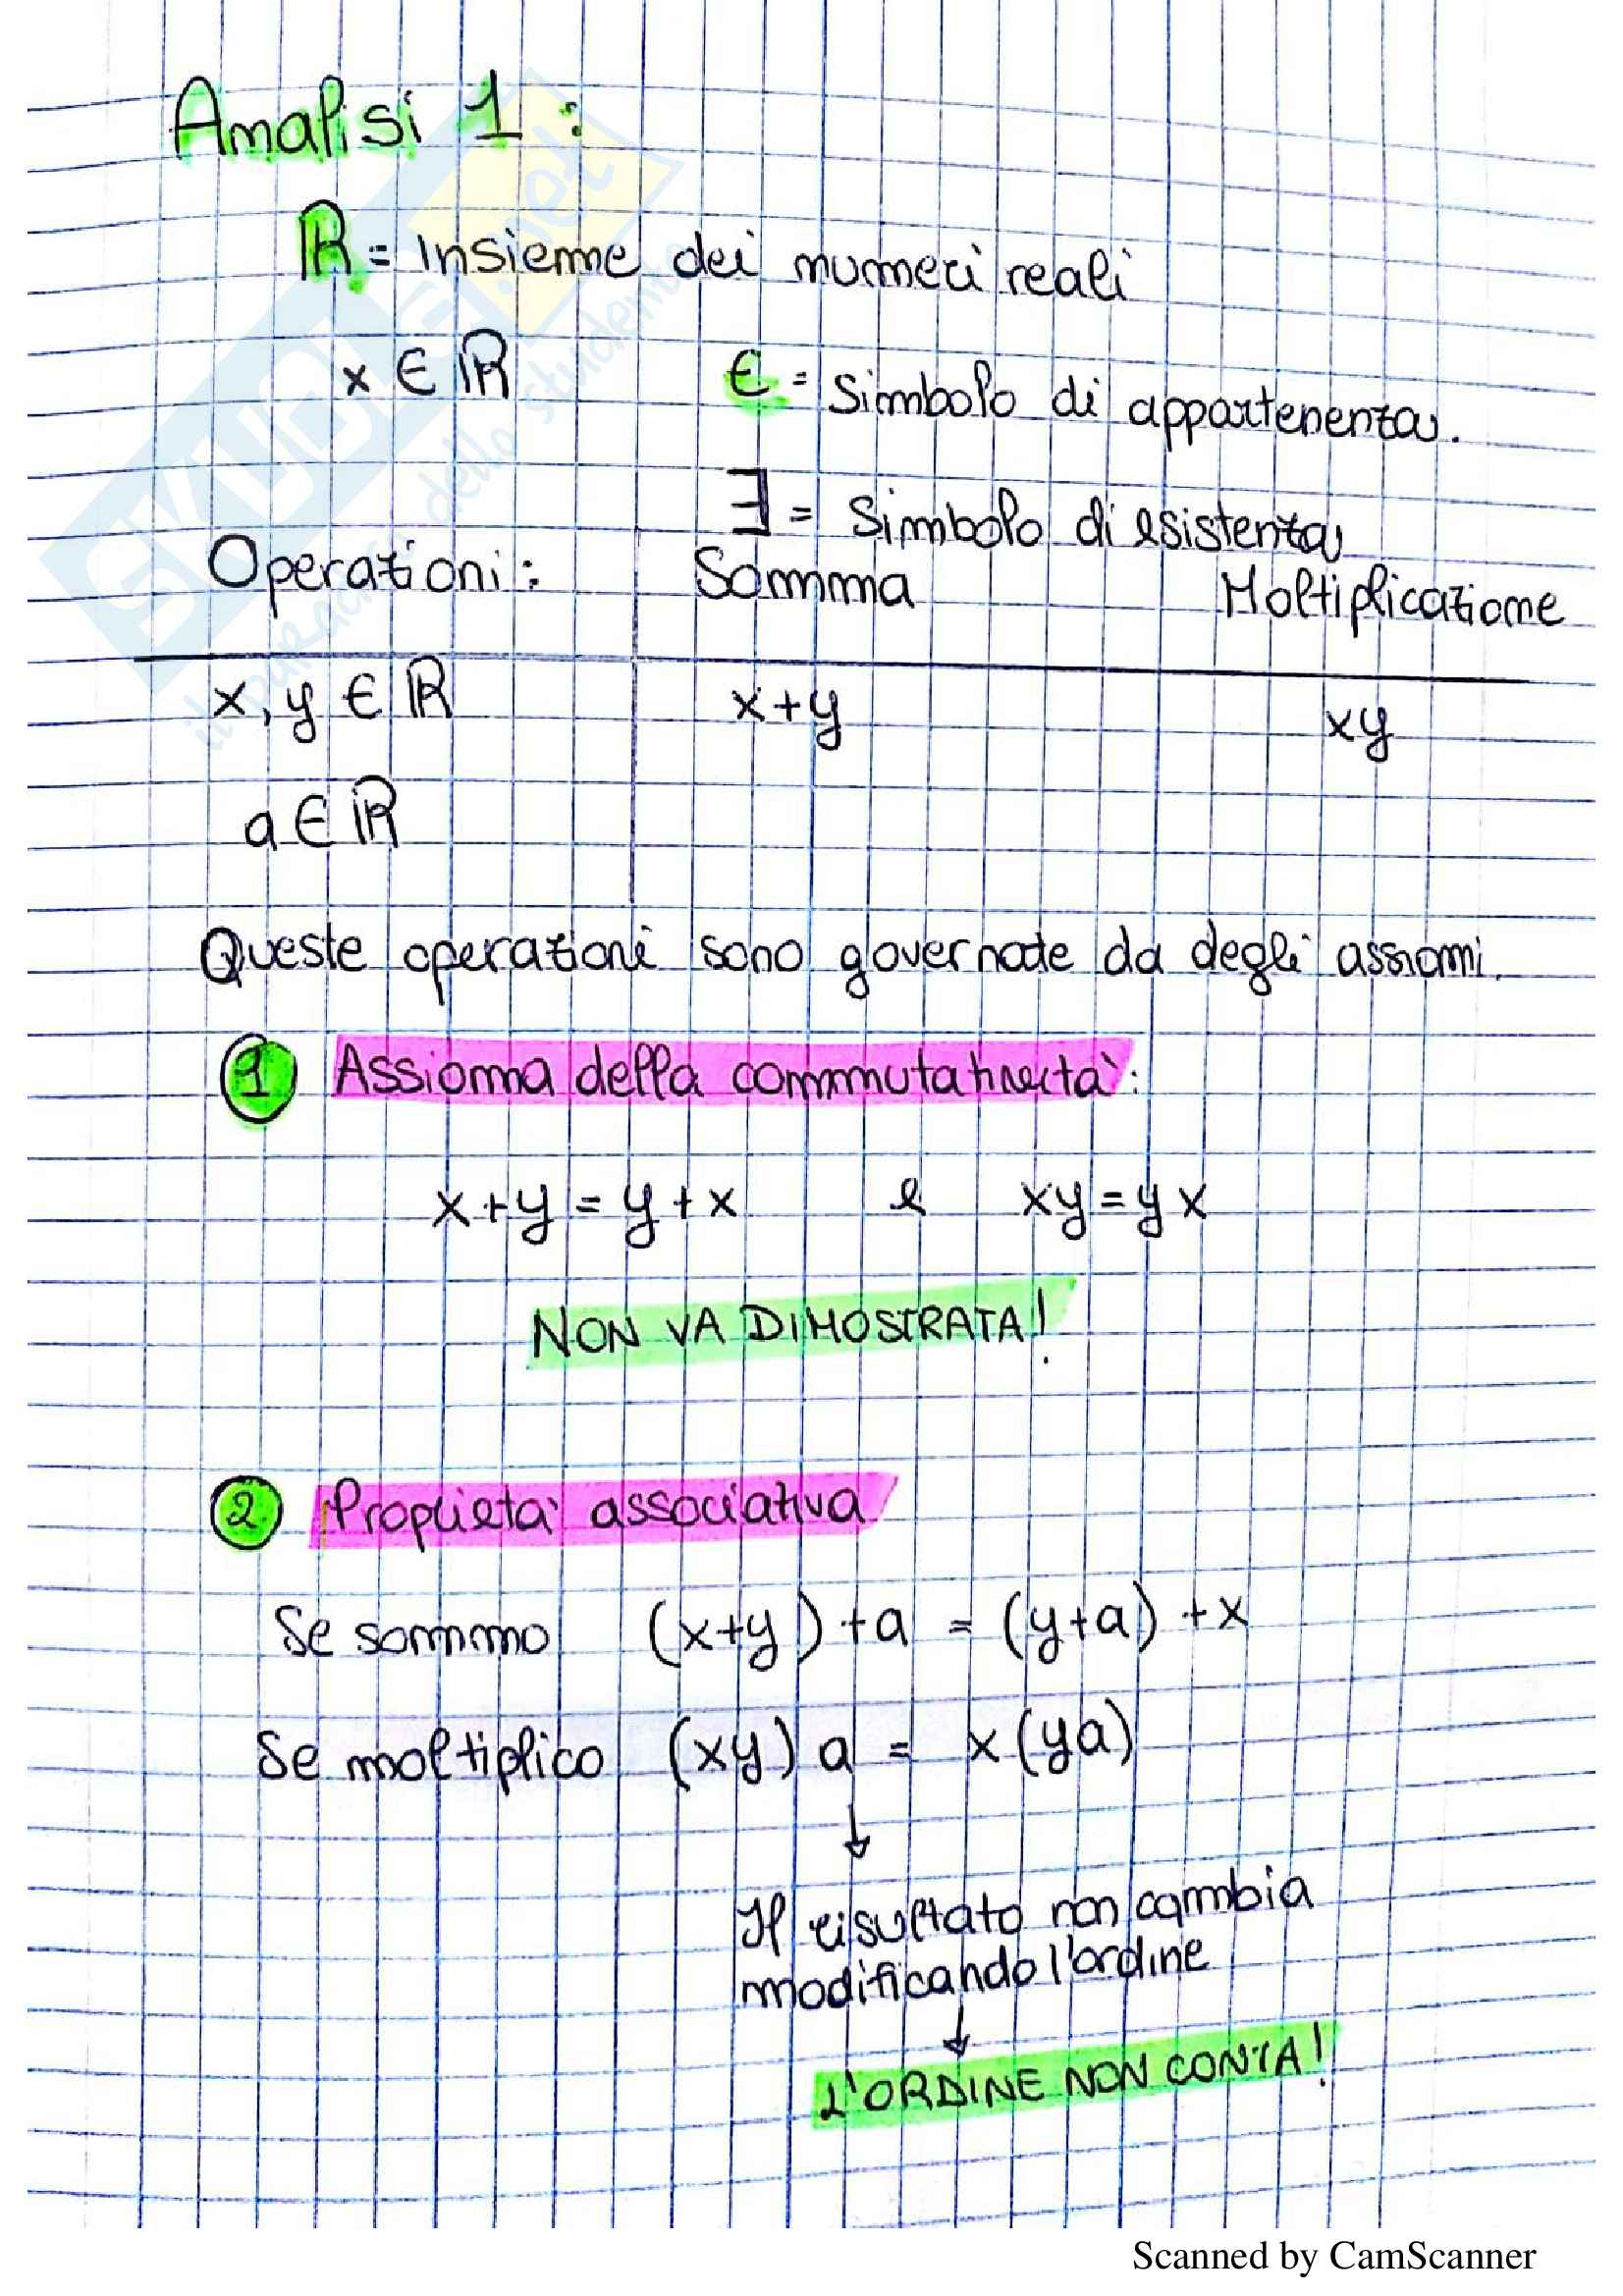 Analisi 1 :
ℝ = Insieme dei numeri reali
x ∈ ℝ
∈ = Simbolo di appartenenza.
∃ = Simbolo di esistenza
Operazioni : Somma Moltiplicazione
x, y ∈ ℝ x+y xy
a ∈ ℝ
Queste operazioni sono governate da degli assiomi.
1 Assioma della commutatività :
x+y = y+x e xy = yx
NON VA DIMOSTRATA!
2 Proprietà associativa
Se sommo (x+y)+a = (y+a)+x
Se moltiplico (xy) a = x(ya)
↓
Il risultato non cambia
modificando l'ordine
↓
L'ORDINE NON CONTA!
SKUOLA.net
il paradiso dello studente
Scanned by CamScanner